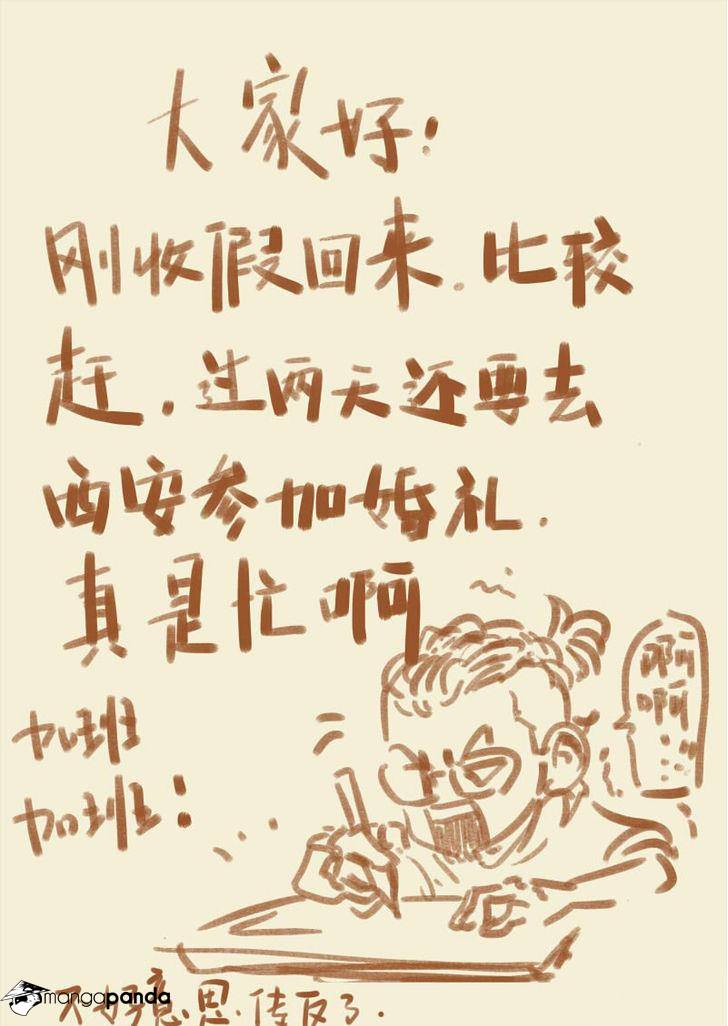 大家好!
刚收假回来.比较
赶.过两天还要去
西安参加婚礼.
真是忙啊
加班
加班:
啊
啊...
不好意思.传反了.
mangapanda